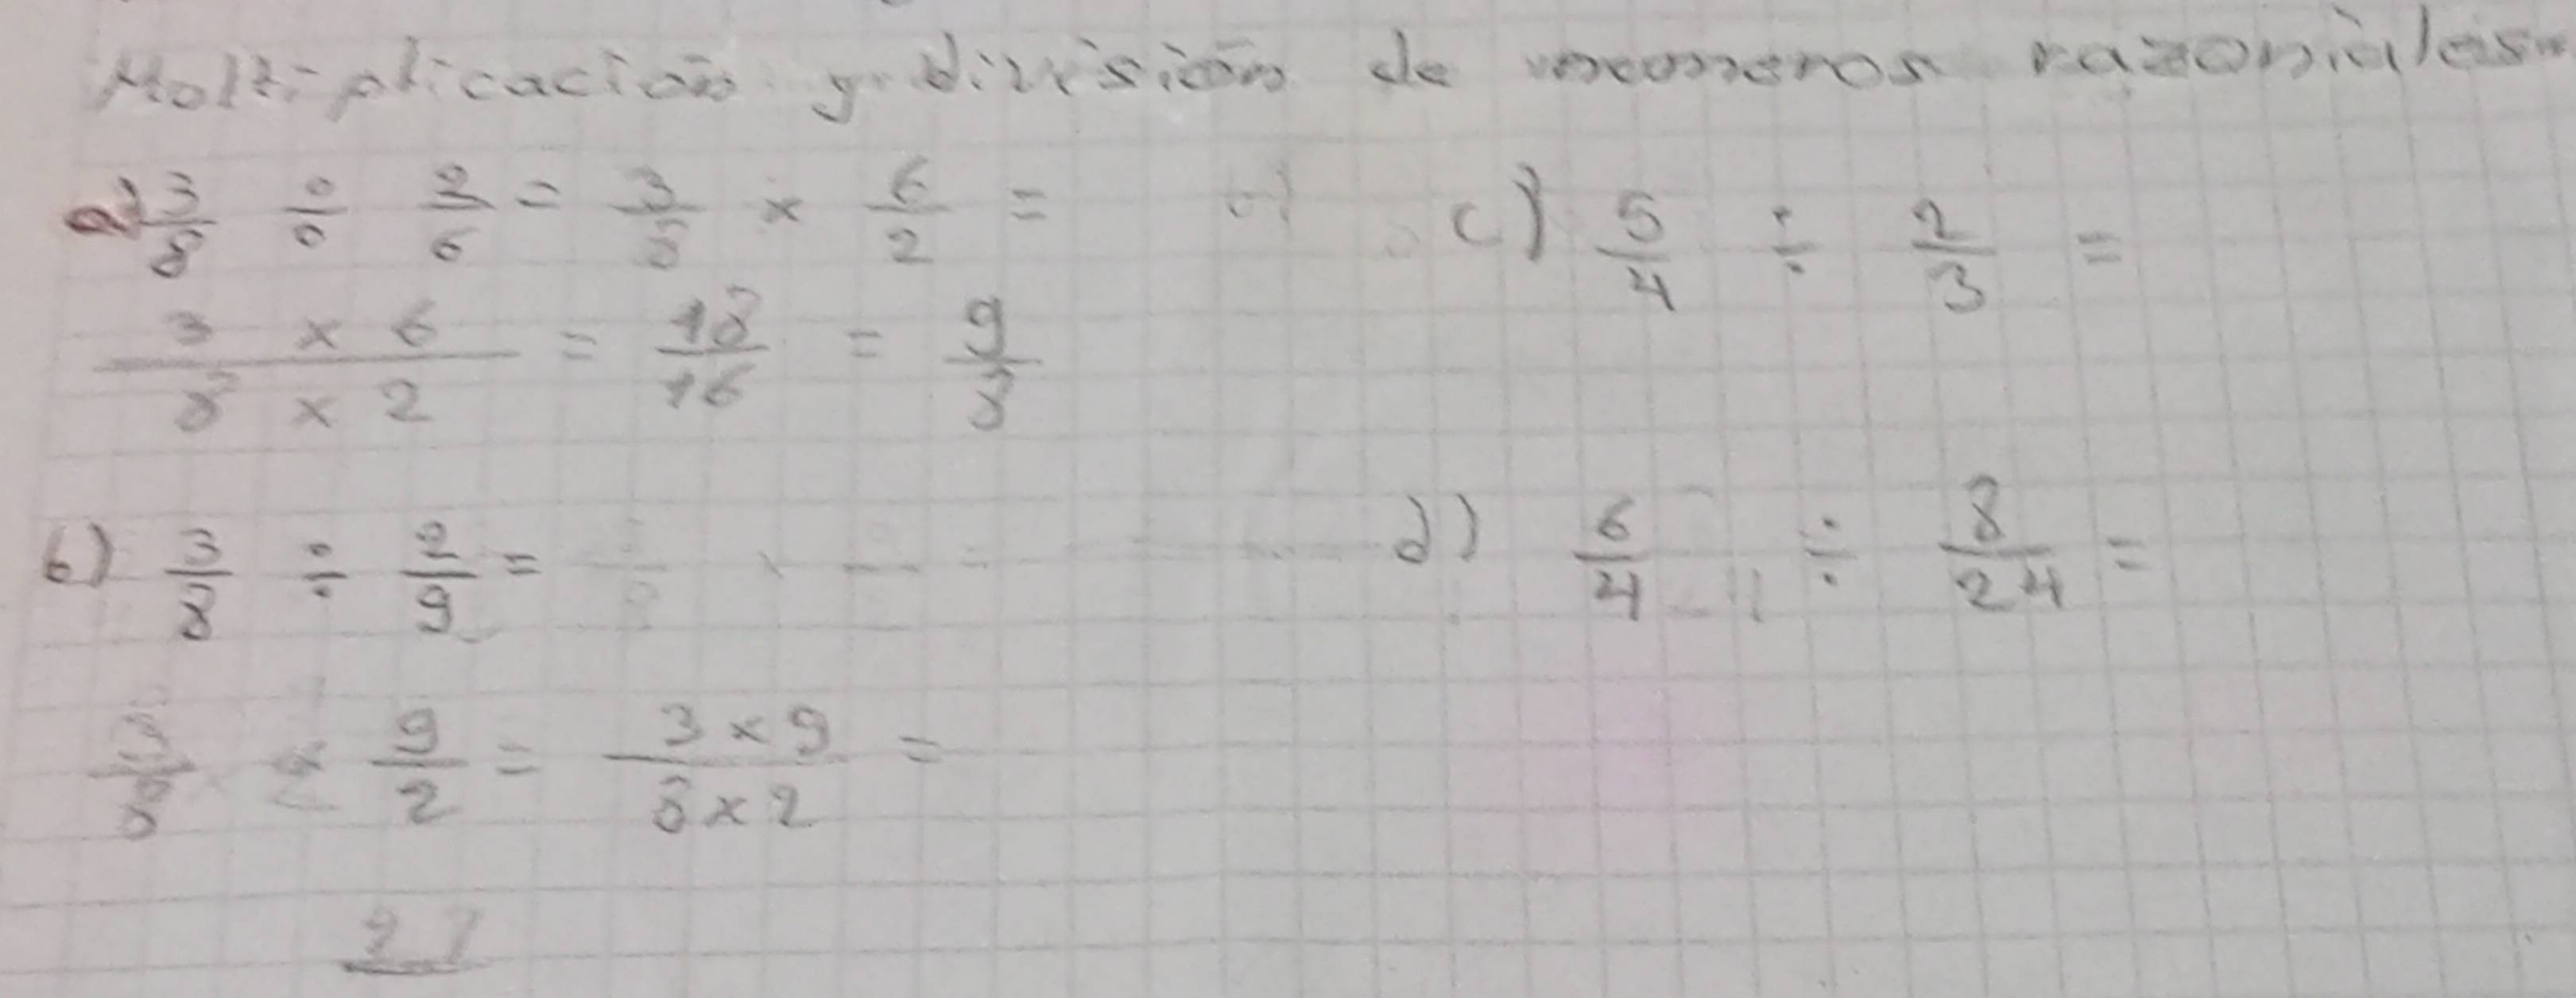 Moltiplicación y división de nomeros razoniales
a) 3/8 ÷ 2/6 = 3/8 × 6/2 =
3 × 6 / 8 × 2 = 18/16 = 9/8
b) 3/8 ÷ 2/9 =
3/8 × 9/2 = 3 × 9 / 8 × 2 =
27
c) 5/4 ÷ 2/3 =
d) 6/4 ÷ 8/24 =